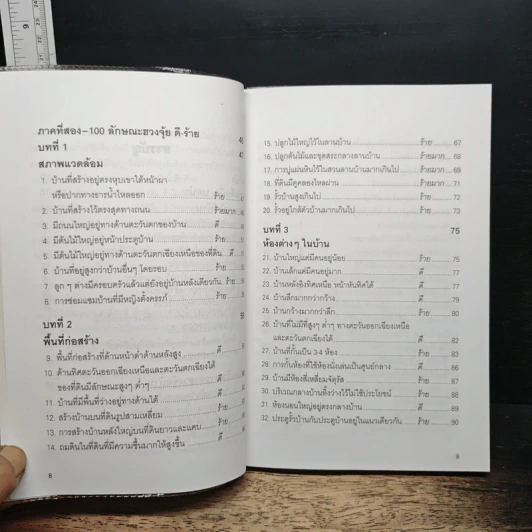 ภาคที่สอง-100 ลักษณะฮวงจุ้ย ดี-ร้าย
บทที่ 1
สภาพแวดล้อม
1. บ้านที่สร้างอยู่ตรงหุบเขาใต้หน้าผา
หรือปากทางธารน้ำไหลออก ร้าย
2. บ้านที่สร้างไว้ตรงสุดทางถนน ร้ายมาก
3. มีถนนใหญ่อยู่ทางด้านตะวันตกของบ้าน ดี
4. มีต้นไม้ใหญ่อยู่หน้าประตูบ้าน ร้าย
5. มีต้นไม้ใหญ่อยู่ทางตะวันตกเฉียงเหนือของที่ดิน ดี
6. บ้านที่อยู่สูงกว่าบ้านอื่นๆ โดยรอบ ร้าย
7. ลูก ๆ ต่างมีครอบครัวแล้วแต่ยังอยู่บ้านหลังเดียวกัน ร้าย
8. การซ่อมแซมบ้านที่มีหญิงตั้งครรภ์ ร้าย
บทที่ 2
พื้นที่ก่อสร้าง
9. พื้นที่ก่อสร้างที่ด้านหน้าต่ำด้านหลังสูง ดี
10. ด้านทิศตะวันออกเฉียงเหนือและตะวันตกเฉียงใต้
ของที่ดินมีลักษณะสูงๆ ต่ำๆ ร้าย
11. บ้านที่มีพื้นที่ว่างอยู่ทางด้านใต้ ดี
12. สร้างบ้านบนที่ดินรูปสามเหลี่ยม ร้าย
13. การสร้างบ้านหลังใหญ่บนที่ดินยาวและแคบ ร้าย
14. ถมดินในที่ดินที่มีความชื้นมากให้สูงขึ้น ดี
8
15. ปลูกไม้ใหญ่ไว้ในลานบ้าน ร้าย 67
16. ปลูกต้นไม้และขุดสระกลางลานบ้าน ร้ายมาก 68
17. การปูแผ่นหินไว้ในสวนลานบ้านมากเกินไป ร้ายมาก 69
18. ที่ดินมีคูคลองไหลผ่าน ร้าย 71
19. รั้วบ้านสูงเกินไป ร้าย 72
20. รั้วอยู่ใกล้ตัวบ้านมากเกินไป ร้าย 73
บทที่ 3 75
ห้องต่างๆ ในบ้าน
21. บ้านใหญ่แต่มีคนอยู่น้อย ร้าย
22. บ้านเล็กแต่มีคนอยู่มาก ดี
23. บ้านหลังอิงทิศเหนือ หน้าหันทิศใต้ ดี
24. บ้านลึกมากกว่ากว้าง ดี
25. บ้านกว้างมากกว่าลึก ร้าย 80
26. บ้านที่ไม่มีที่สูงๆ ต่ำๆ ทางตะวันออกเฉียงเหนือ
และตะวันตกเฉียงใต้ ดี
27. บ้านที่กั้นเป็น 3-4 ห้อง ร้าย
28. การกั้นห้องที่ใช้ห้องนั่งเล่นเป็นศูนย์กลาง ดี
29. บ้านมีห้องสี่เหลี่ยมจัตุรัส ร้าย
30. บริเวณกลางบ้านทิ้งว่างไว้ไม่ใช้ประโยชน์ ร้าย
31. ห้องนอนใหญ่อยู่ตรงกลางบ้าน ดี 89
32. ประตูรั้วบ้านกับประตูบ้านอยู่ในแนวเดียวกัน ร้าย 90
9